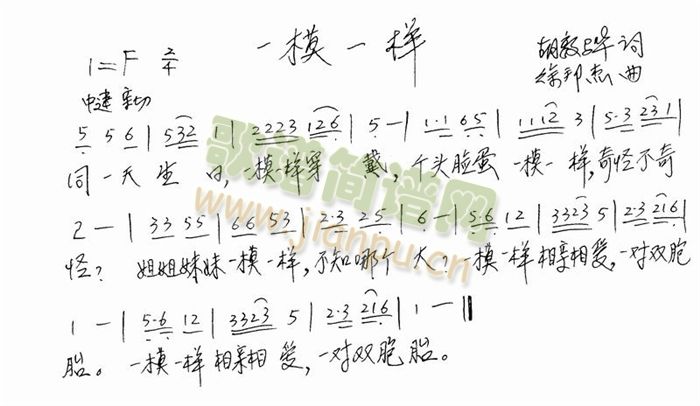 一模一样
1=F 2/4
胡敦骅 词
徐邦杰 曲
中速 亲切
5 5 6 | 532 1 | 2223 126 | 5 - | 1·1 65 | 1112 3 | 5·3 231 |
同一天 生 日,一模一样穿 戴,个头脸蛋 一模一样,奇怪不奇
2 - | 33 55 | 66 53 | 2·3 25 | 6 - | 5·6 12 | 3323 5 | 2·3 216 |
怪? 姐姐妹妹一模一样,不知哪个 大?一模一样相亲相爱,一对双胞
1 - | 5·6 12 | 3323 5 | 2·3 216 | 1 - ‖
胎。 一模一样相亲相 爱,一对双胞 胎。
歌谱简谱网
www.jianpu.cn